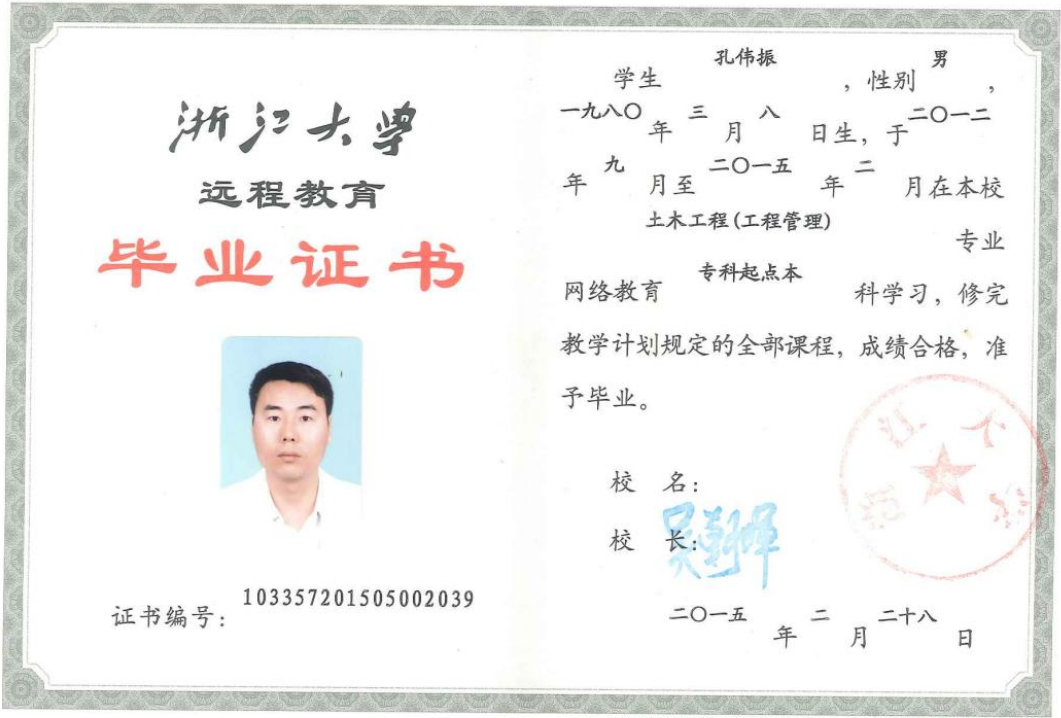 浙江大学
远程教育
毕业证书
证书编号：103357201505002039
学生 孔伟振 ，性别 男 ，
一九八〇年 三 月 八 日生，于二〇一二
年 九 月至 二〇一五 年 二 月在本校
土木工程(工程管理) 专业
网络教育 专科起点本 科学习，修完
教学计划规定的全部课程，成绩合格，准
予毕业。
校 名：
浙江大学
校 长：
二〇一五 年 二 月 二十八 日